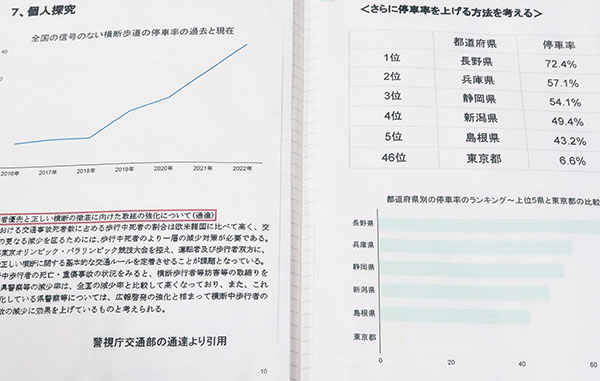 7、個人探究
全国の信号のない横断歩道の停車率の過去と現在
40
20
0
2016年 2017年 2018年 2019年 2020年 2021年 2022年
者優先と正しい横断の徹底に向けた取組の強化について(通達)
おける交通事故死者数に占める歩行中死者の割合は欧米韓国に比べて高く、
の更なる減少を図るためには、歩行中死者のより一層の減少対策が必要である。
東京オリンピック・パラリンピック競技大会を控え、運転者及び歩行者双方に、
正しい横断に関する基本的な交通ルールを定着させることが課題となっている。
中歩行者の死亡・重傷事故の状況をみると、横断歩行者等妨害等の取締りを
県警察等の減少率は、全国の減少率と比較して高くなっており、また、これ
化している県警察等については、広報啓発の強化と相まって横断中歩行者の
故の減少に効果を上げているものと考えられる。
警視庁交通部の通達より引用
10
<さらに停車率を上げる方法を考える>
都道府県 停車率
1位 長野県 72.4%
2位 兵庫県 57.1%
3位 静岡県 54.1%
4位 新潟県 49.4%
5位 島根県 43.2%
46位 東京都 6.6%
都道府県別の停車率のランキング~上位5県と東京都の比較
長野県
兵庫県
静岡県
新潟県
島根県
東京都
0 20 40 60